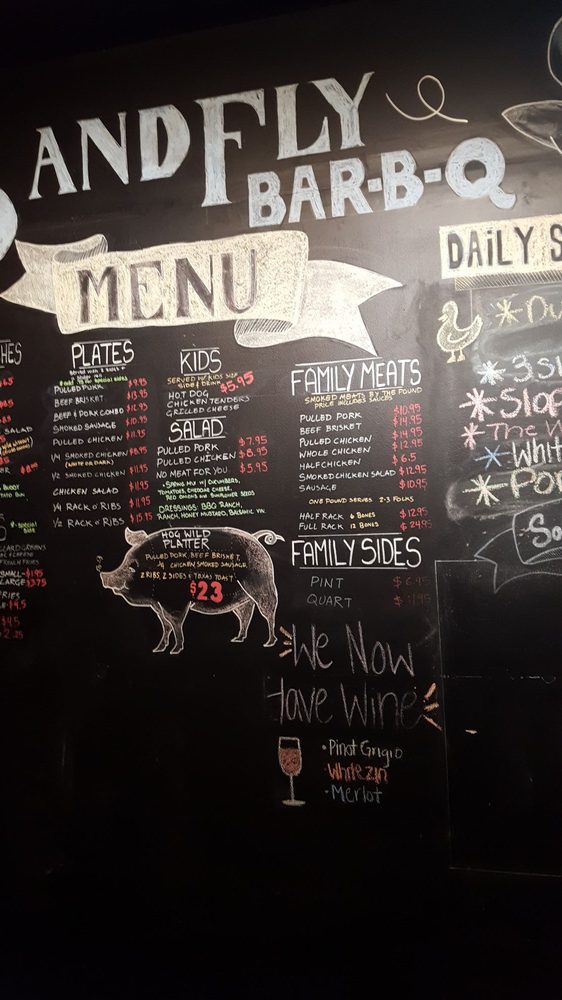 AND FLY
BAR-B-Q
MENU
DAILY S
PLATES
PULLED PORK $9.95
BEEF BRISKET $13.95
BEEF & PORK COMBO $12.95
SMOKED SAUSAGE $10.95
PULLED CHICKEN $11.95
1/4 SMOKED CHICKEN $8.95
(WHITE OR DARK)
1/2 SMOKED CHICKEN $11.95
CHICKEN SALAD $11.95
1/4 RACK O' RIBS $11.95
1/2 RACK O' RIBS $15.95
KIDS
SERVED W/ KIDS SIZE
SIDE & DRINK $5.95
HOT DOG
CHICKEN TENDERS
GRILLED CHEESE
SALAD
PULLED PORK $7.95
PULLED CHICKEN $8.95
NO MEAT FOR YOU $5.95
SPRING MIX W/ CUCUMBERS,
TOMATOES, CHEDDAR CHEESE,
RED ONIONS AND SUNFLOWER SEEDS
DRESSINGS: BBQ RANCH,
RANCH, HONEY MUSTARD, BALSAMIC VIN.
HOG WILD
PLATTER
PULLED PORK, BEEF BRISKET,
1/4 CHICKEN SMOKED SAUSAGE,
2 RIBS, 2 SIDES & TEXAS TOAST
$23
FAMILY MEATS
SMOKED MEATS BY THE POUND
PRICE INCLUDES SAUCES
PULLED PORK $10.95
BEEF BRISKET $14.95
PULLED CHICKEN $14.95
WHOLE CHICKEN $12.95
HALF CHICKEN $6.5
SMOKED CHICKEN SALAD $12.95
SAUSAGE $10.95
ONE POUND SERVES 2-3 FOLKS
HALF RACK 6 BONES $12.95
FULL RACK 12 BONES $24.95
FAMILY SIDES
PINT
QUART
We Now
Have Wine
• Pinot Grigio
• White Zin
• Merlot